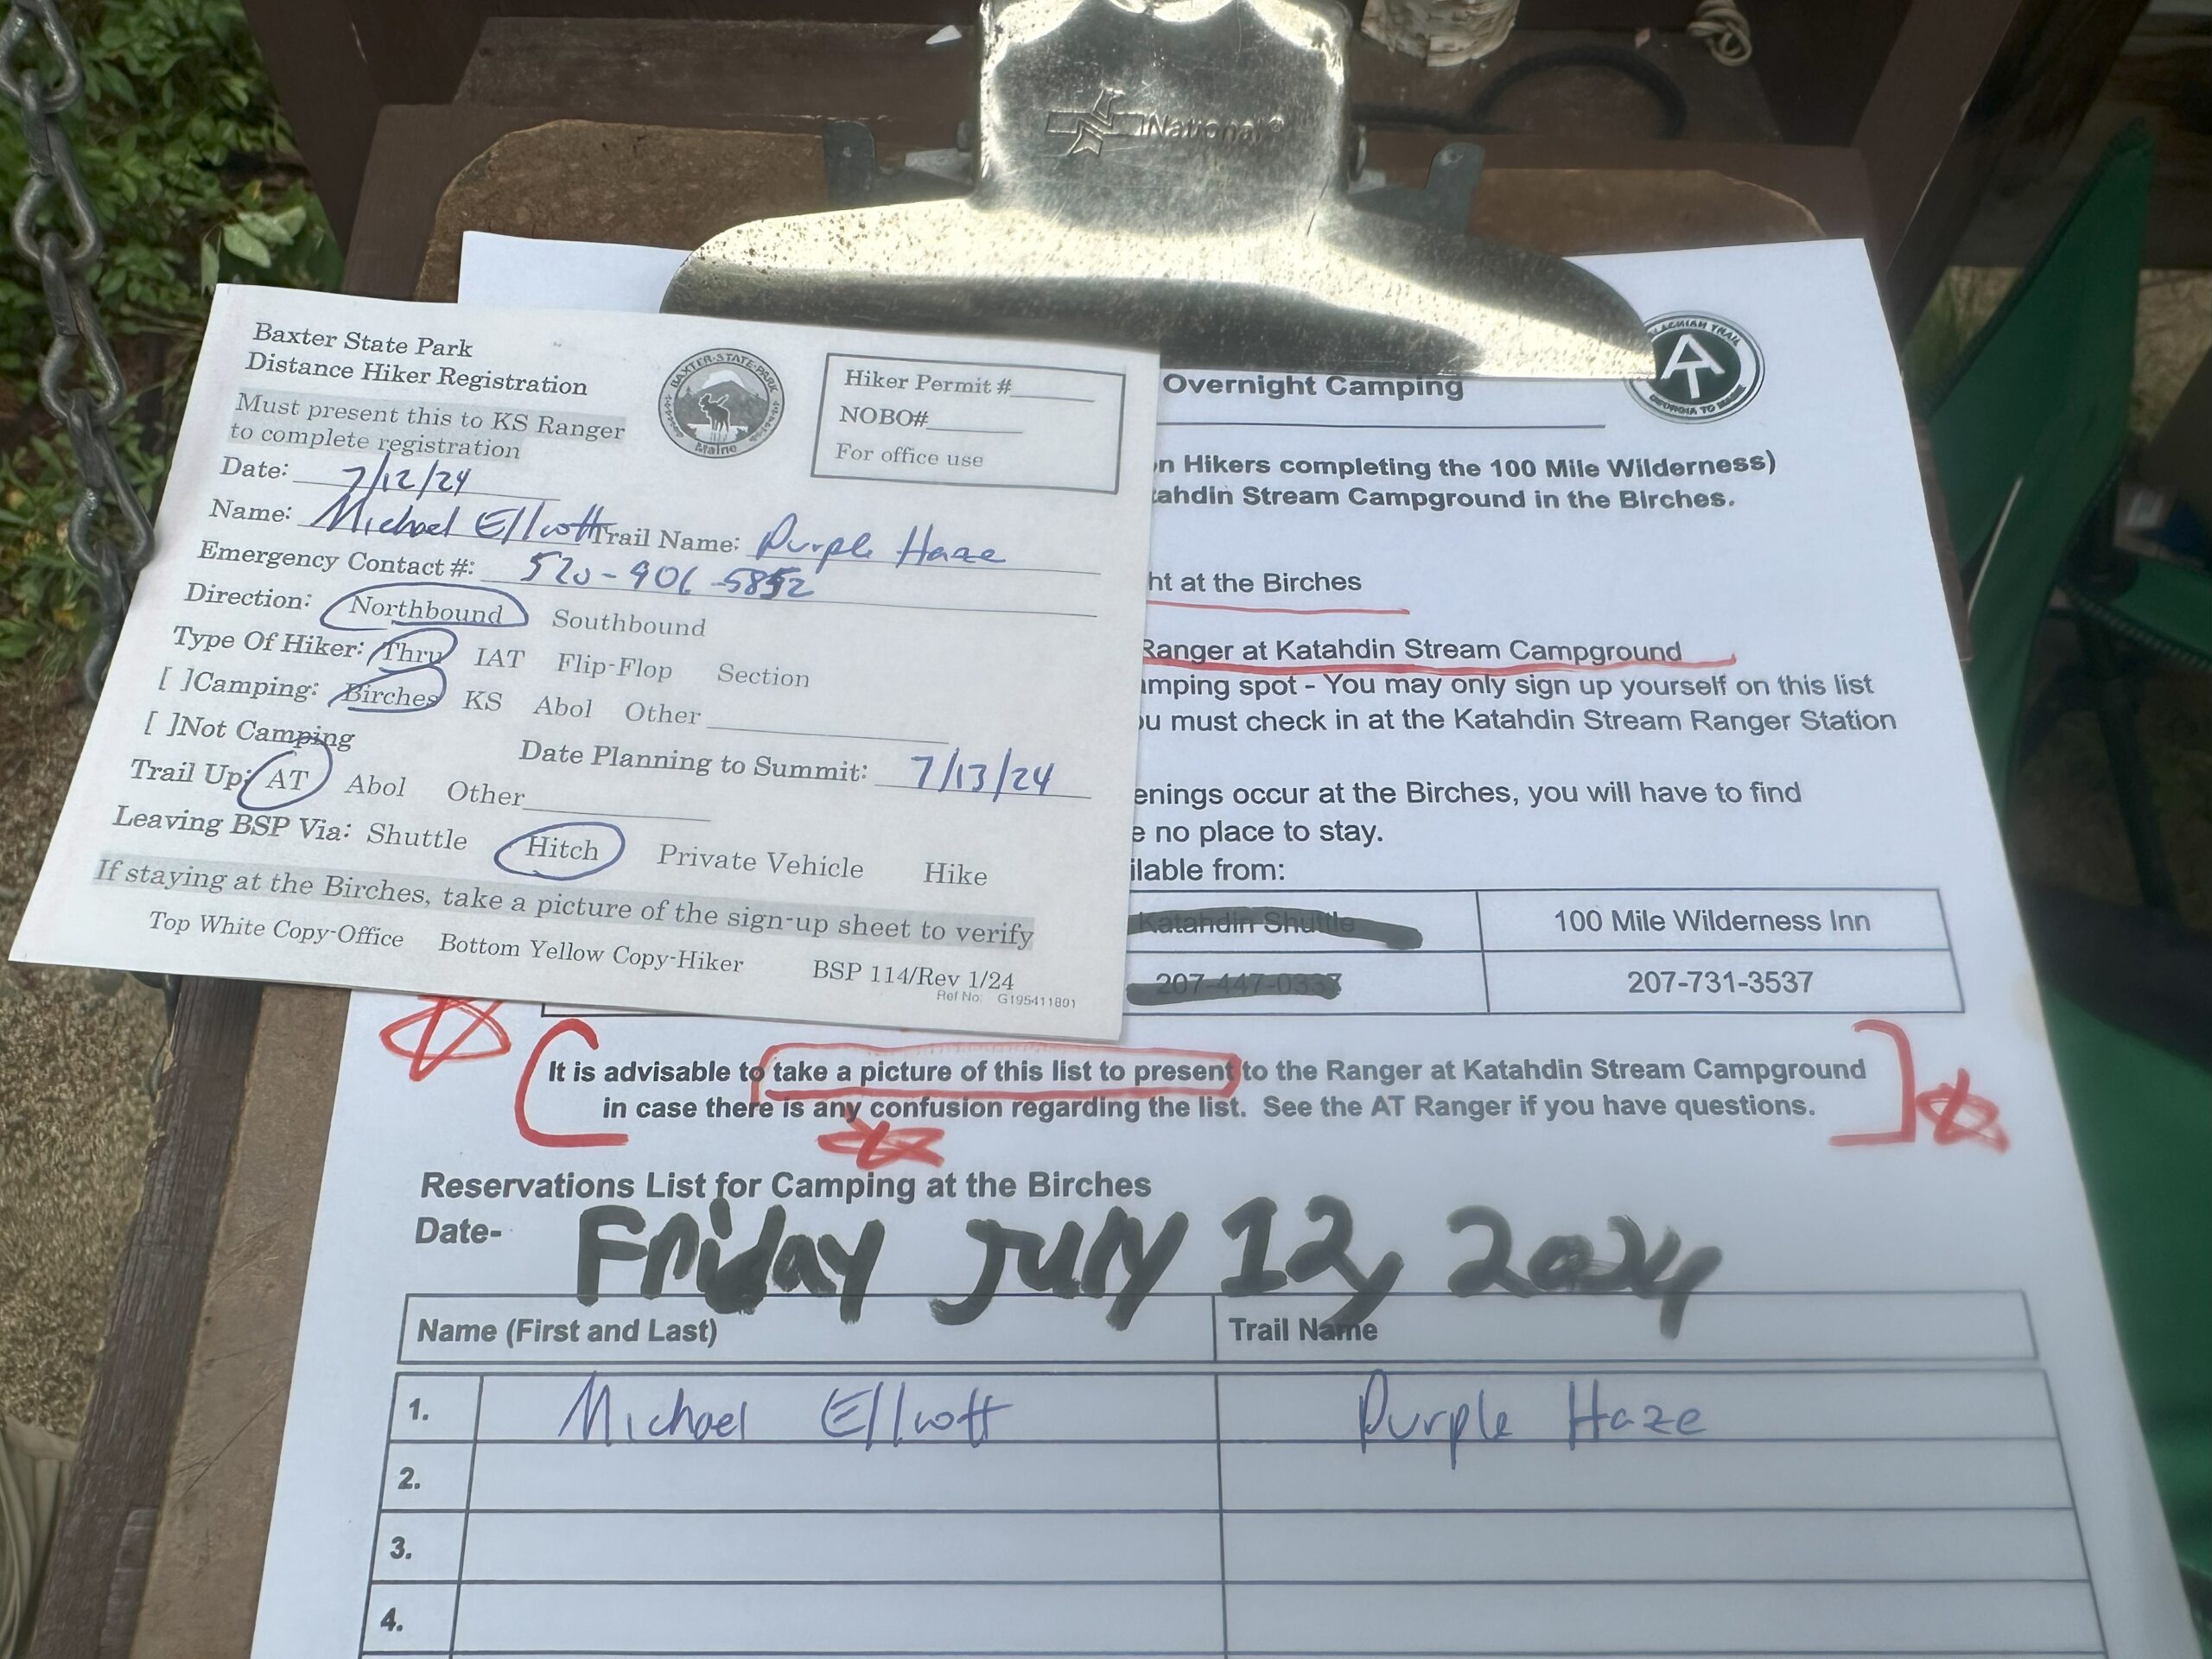 National®
Baxter State Park
Distance Hiker Registration
Must present this to KS Ranger
to complete registration
BAXTER STATE PARK
Maine
Hiker Permit #
NOBO#
For office use
Date: 7/12/24
Name: Michael Ellcott Trail Name: Purple Haze
Emergency Contact #: 520-906-5852
Direction: Northbound Southbound
Type Of Hiker: Thru IAT Flip-Flop Section
[ ]Camping: Birches KS Abol Other
[ ]Not Camping
Date Planning to Summit: 7/13/24
Trail Up: AT Abol Other
Leaving BSP Via: Shuttle Hitch Private Vehicle Hike
If staying at the Birches, take a picture of the sign-up sheet to verify
Top White Copy-Office Bottom Yellow Copy-Hiker BSP 114/Rev 1/24
Ref No: G195411801
AT
GEORGIA TO MAINE
Overnight Camping
n Hikers completing the 100 Mile Wilderness)
tahdin Stream Campground in the Birches.
ht at the Birches
Ranger at Katahdin Stream Campground
mping spot - You may only sign up yourself on this list
ou must check in at the Katahdin Stream Ranger Station
enings occur at the Birches, you will have to find
e no place to stay.
ilable from:
Katahdin Shuttle 100 Mile Wilderness Inn
207-447-0337 207-731-3537
It is advisable to take a picture of this list to present to the Ranger at Katahdin Stream Campground
in case there is any confusion regarding the list. See the AT Ranger if you have questions.
Reservations List for Camping at the Birches
Date- Friday July 12, 2024
Name (First and Last) Trail Name
1. Michael Ellcott Purple Haze
2.
3.
4.